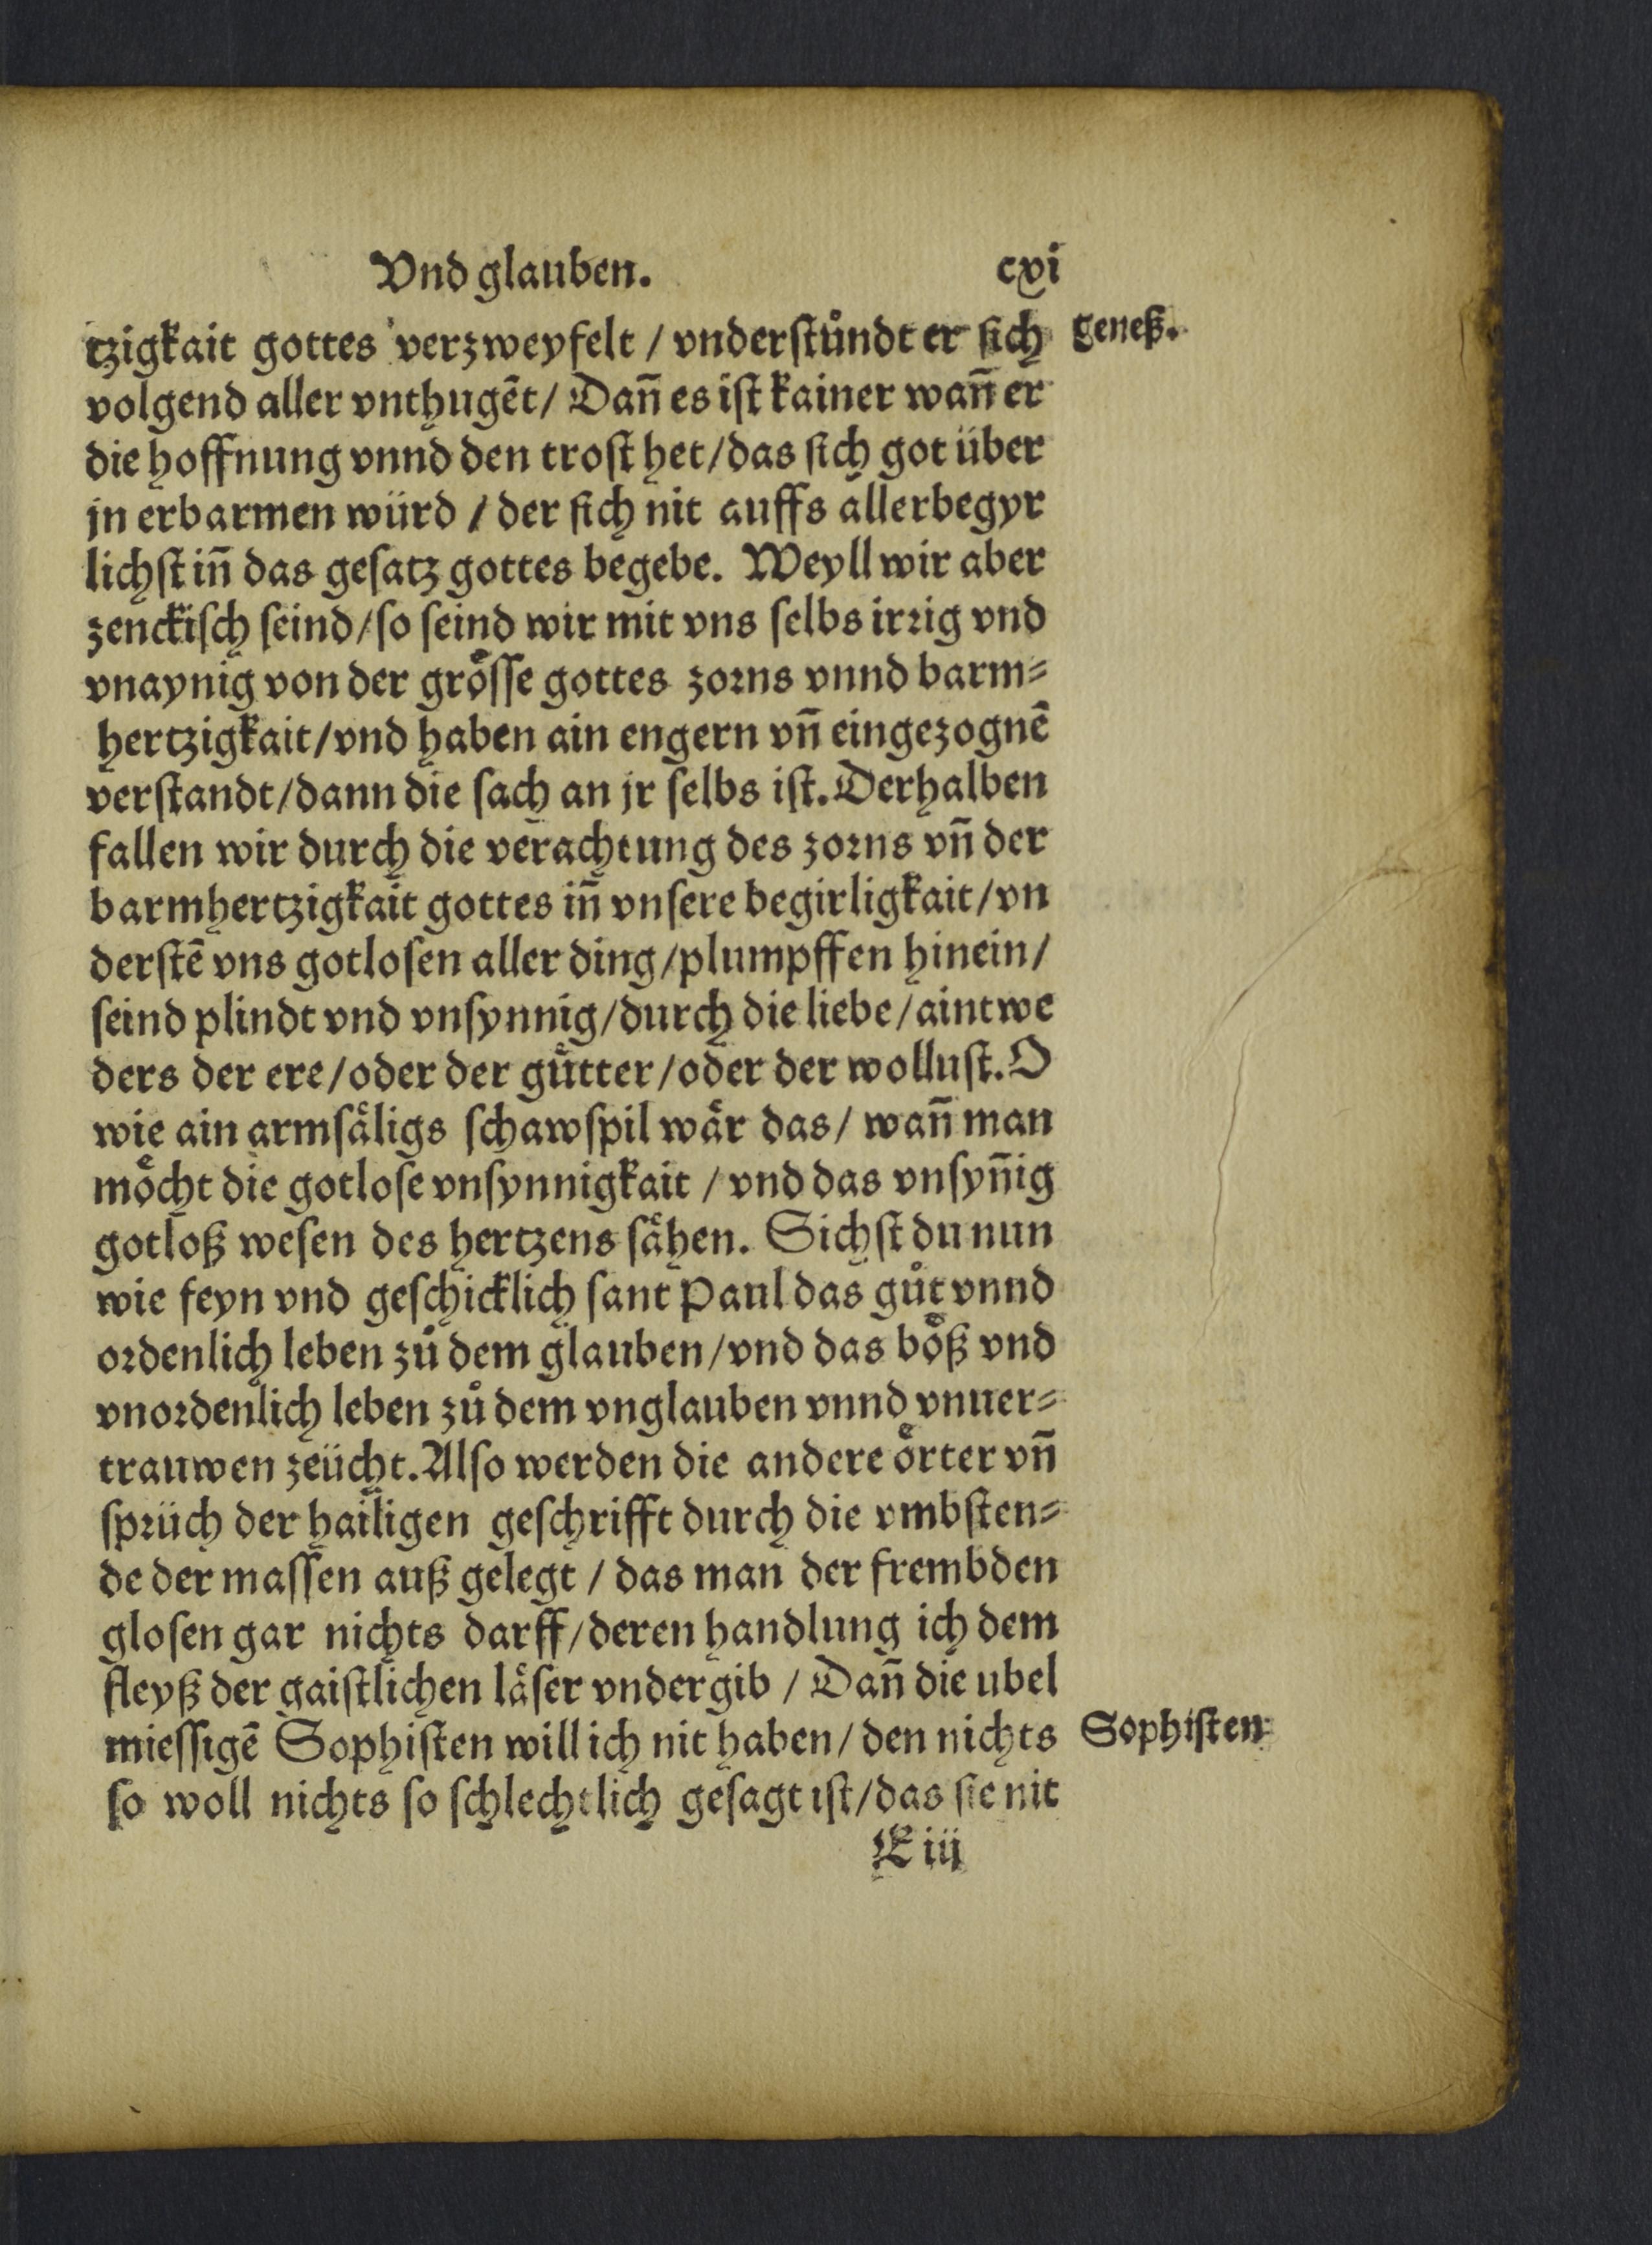 Vnd glauben. cxi
tzigkait gottes verzweyfelt / vnderstůndt er sich geneß.
volgend aller vnthugēt / Dan̄ es ist kainer wan̄ er
die hoffnung vnnd den trost het / das sich got über
jn erbarmen würd / der sich nit auffs allerbegyr
lichst in̄ das gesatz gottes begebe. Weyll wir aber
zenckisch seind / so seind wir mit vns selbs irrig vnd
vnaynig von der grösse gottes zorns vnnd barm⸗
hertzigkait / vnd haben ain engern vn̄ eingezognē
verstandt / dann die sach an jr selbs ist. Derhalben
fallen wir durch die verachtung des zorns vn̄ der
barmhertzigkait gottes in̄ vnsere begirligkait / vn
derstē vns gotlosen aller ding / plumpffen hinein /
seind plindt vnd vnsynnig / durch die liebe / aintwe
ders der ere / oder der gůtter / oder der wollust. O
wie ain armsåligs schawspil wår das / wan̄ man
möcht die gotlose vnsynnigkait / vnd das vnsyn̄ig
gotloß wesen des hertzens såhen. Sichst du nun
wie feyn vnd geschicklich sant Paul das gůt vnnd
ordenlich leben zů dem glauben / vnd das böß vnd
vnordenlich leben zů dem vnglauben vnnd vnuer⸗
trauwen zeücht. Also werden die andere örter vn̄
sprüch der hailigen geschrifft durch die vmbsten⸗
de der massen auß gelegt / das man der frembden
glosen gar nichts darff / deren handlung ich dem
fleyß der gaistlichen låser vndergib / Dan̄ die ubel
miessigē Sophisten will ich nit haben / den nichts Sophisten
so woll nichts so schlechtlich gesagt ist / das sie nit
E iij